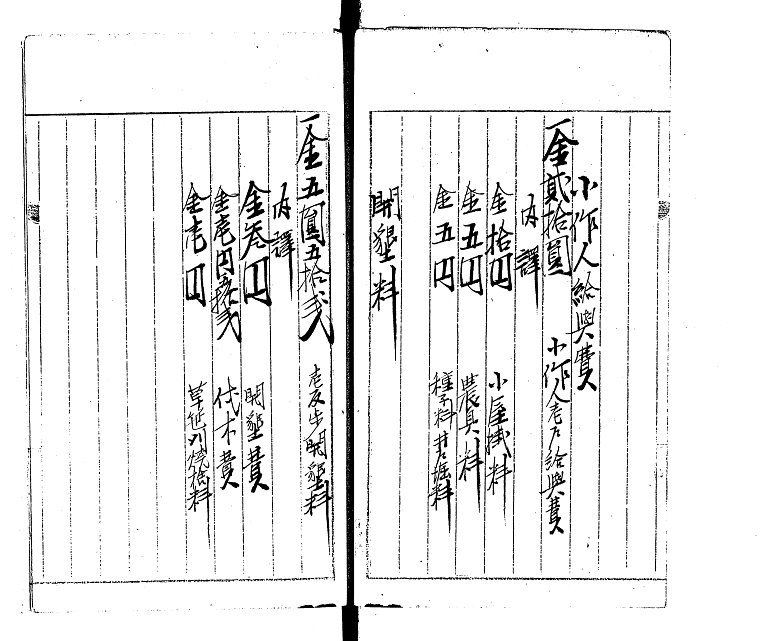 小作人給與費
一金貳拾圓 小作人壱戸給與費
内譯
金拾円 小屋掛料
金五円 農具料
金五円 種子料井戸堀料
開墾料
一金五圓五拾戋 壱反歩開墾料
内譯
金叁円 開墾費
金壱円五拾戋 伐木費
金壱円 草笹刈焼拂料